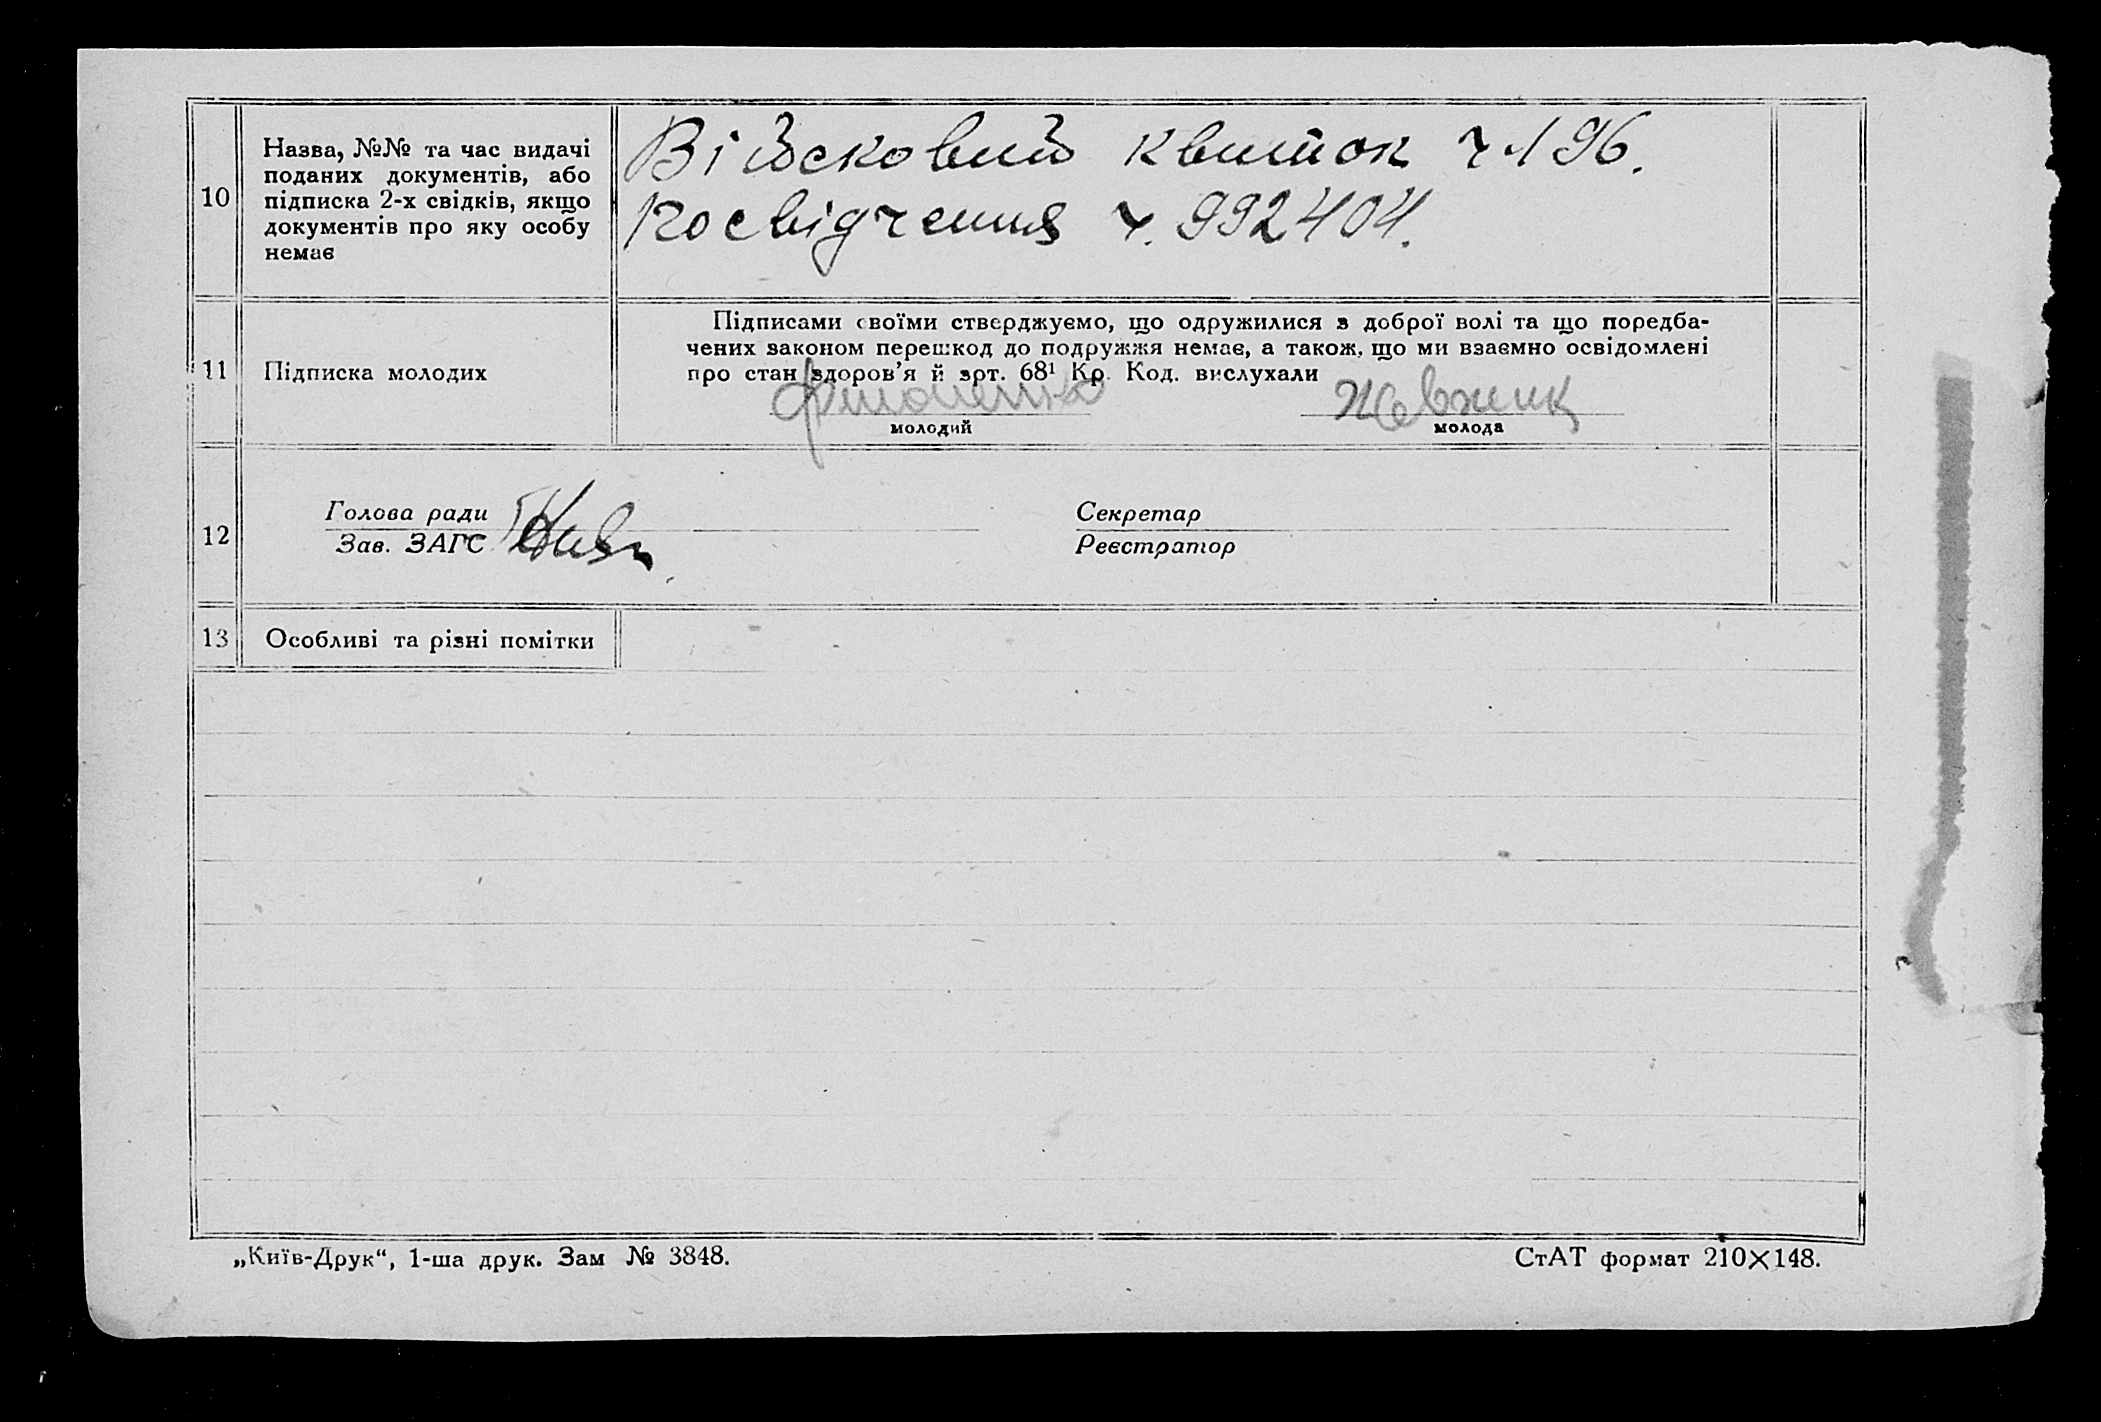 10
Назва, №№ та час видачі
поданих документів, або
підписка 2-х свідків, якщо
документів про яку особу
немає
Військовий квиток ч 196.
Посвідчення ч. 992404.
11
Підписка молодих
Підписами своїми стверджуємо, що одружилися з доброї волі та що поредба-
чених законом перешкод до подружжя немає, а також, що ми взаємно освідомлені
про стан здоров’я й зрт. 68¹ Кр. Код. вислухали
молодий
молода
12
Голова ради
Зав. ЗАГС
Секретар
Реєстратор
13
Особливі та різні помітки
„Київ-Друк“, 1-ша друк. Зам № 3848.
СтАТ формат 210×148.